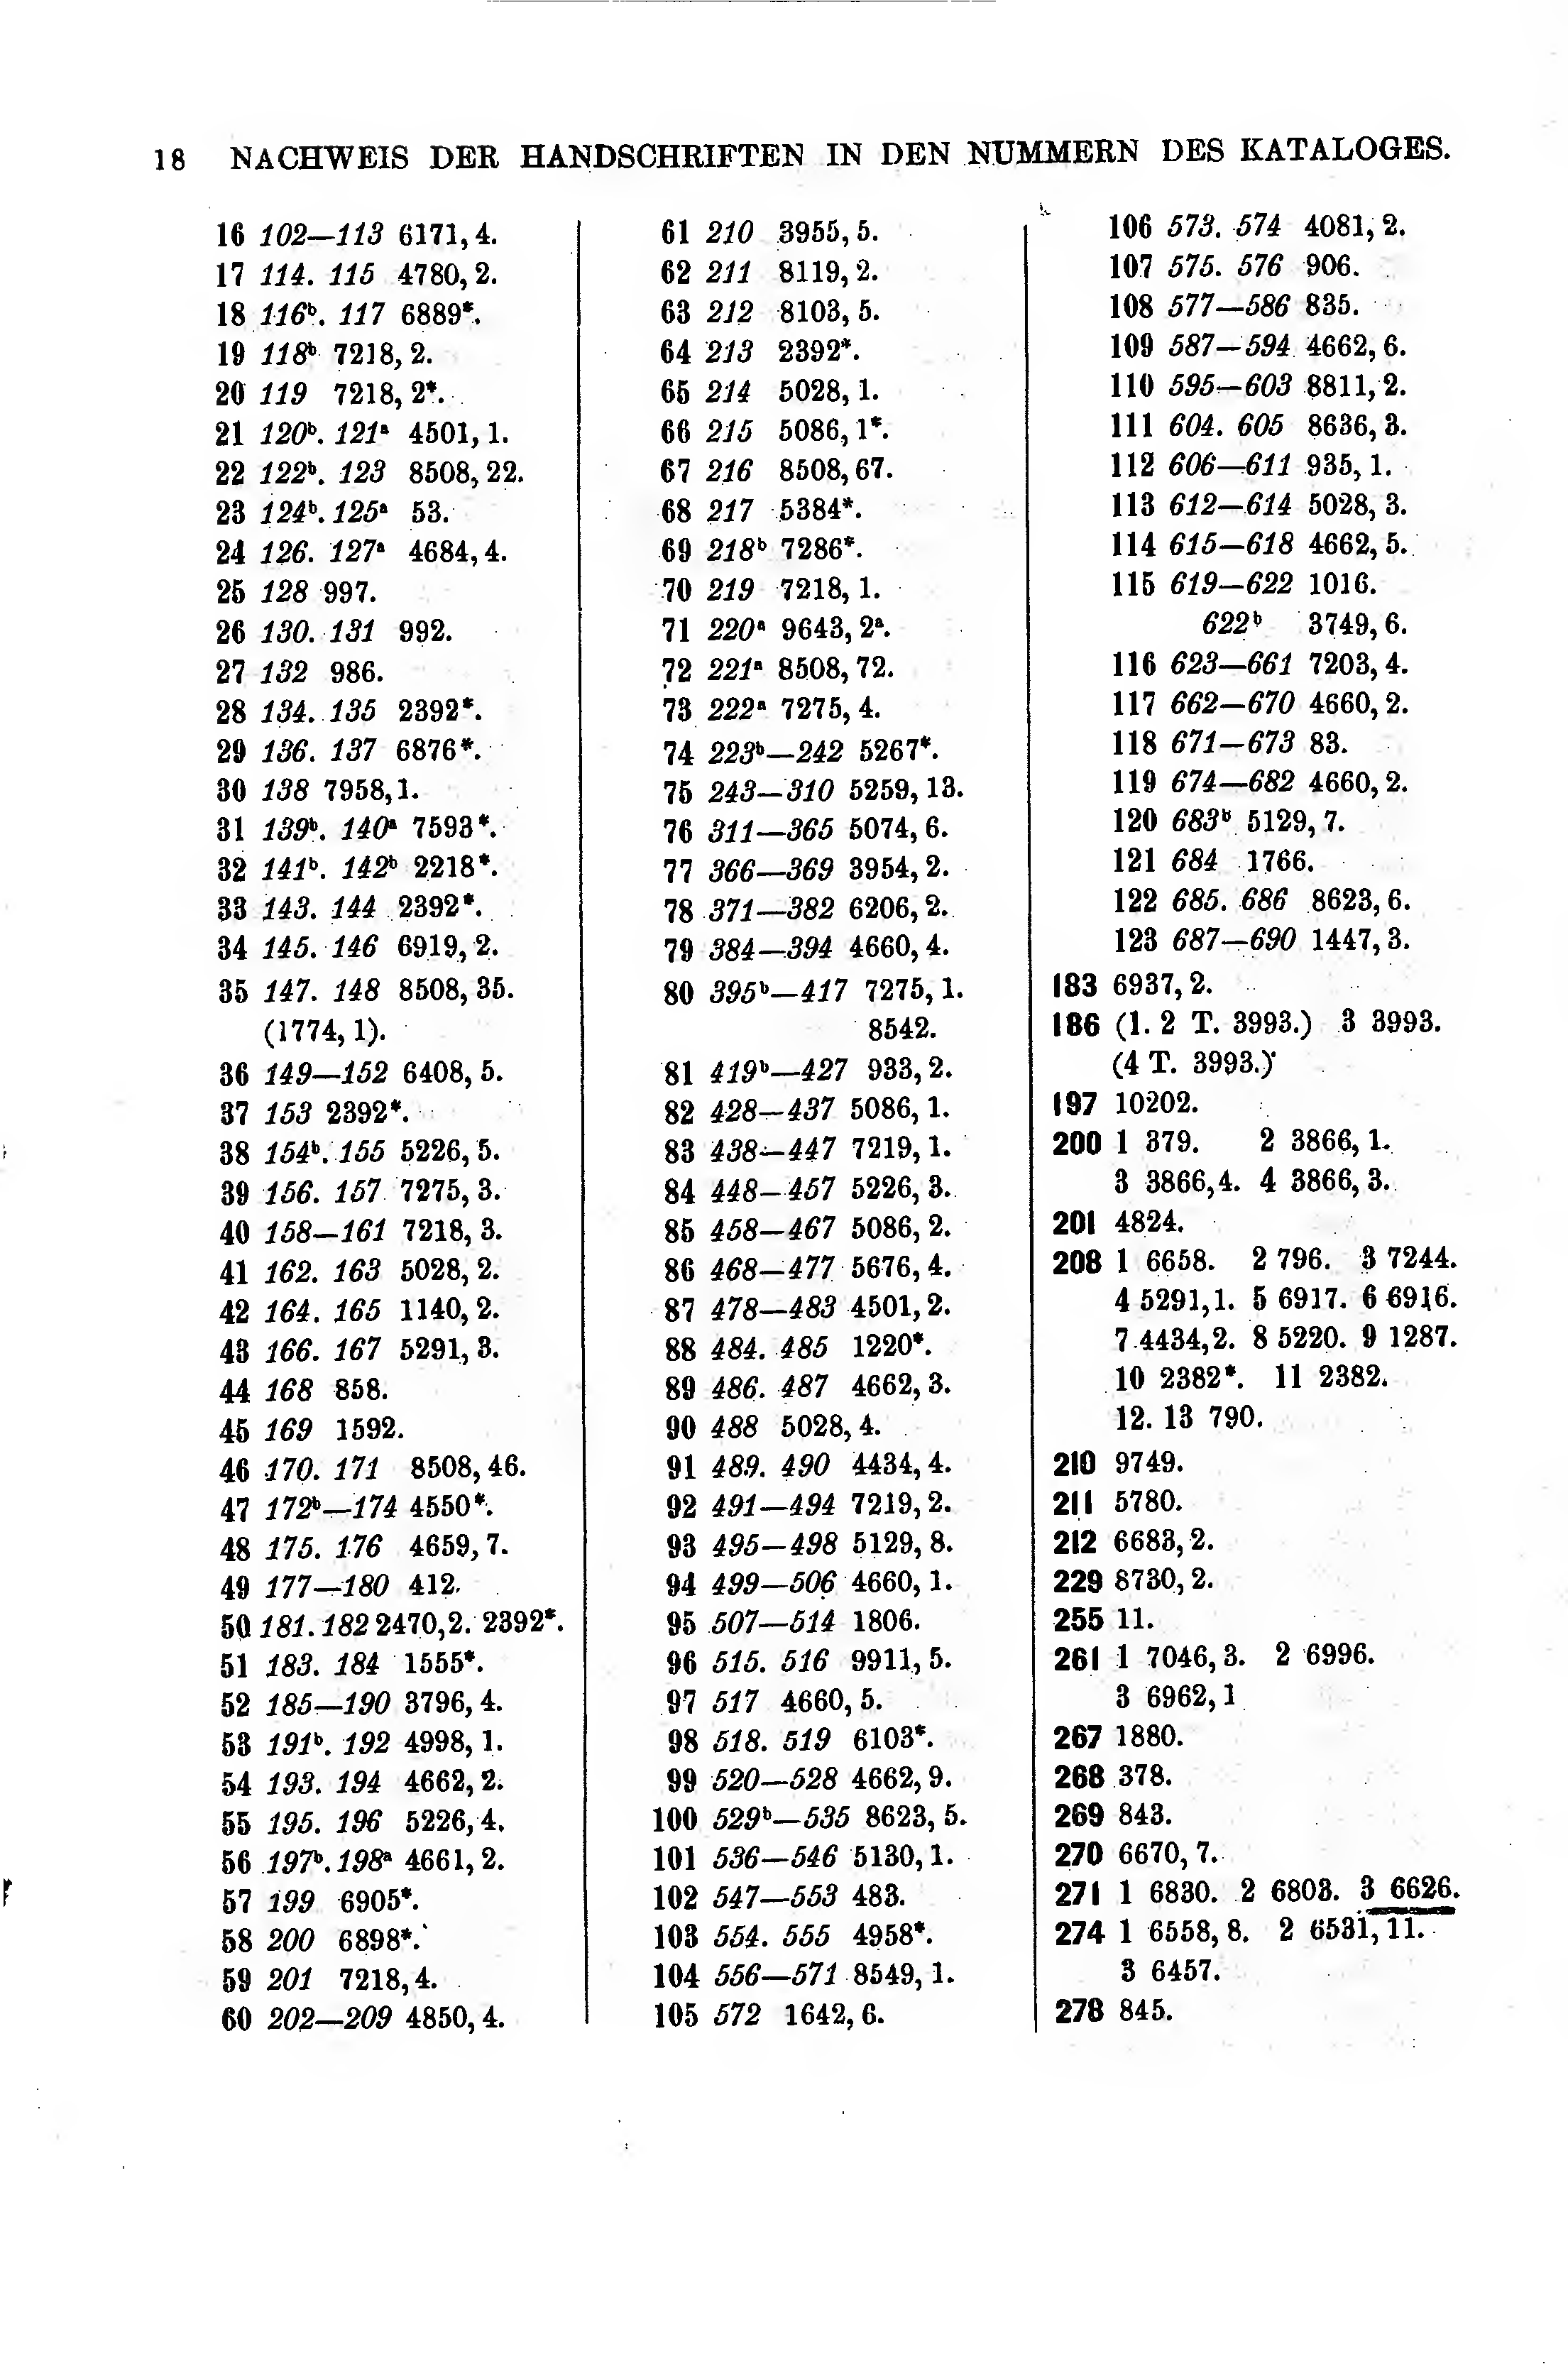 18 NACHWEIS DER HANDSCHRIFTEN IN DEN NUMMERN DES KATALOGES.
16 102—113 6171, 4.
17 114. 115 4780, 2.
18 116ᵇ. 117 6889*.
19 118ᵇ 7218, 2.
20 119 7218, 2*.
21 120ᵇ. 121ᵃ 4501, 1.
22 122ᵇ. 123 8508, 22.
23 124ᵇ. 125ᵃ 53.
24 126. 127ᵃ 4684, 4.
25 128 997.
26 130. 131 992.
27 132 986.
28 134. 135 2392*.
29 136. 137 6876*.
30 138 7958, 1.
31 139ᵇ. 140ᵃ 7593*.
32 141ᵇ. 142ᵇ 2218*.
33 143. 144 2392*.
34 145. 146 6919, 2.
35 147. 148 8508, 35.
(1774, 1).
36 149—152 6408, 5.
37 153 2392*.
38 154ᵇ. 155 5226, 5.
39 156. 157 7275, 3.
40 158—161 7218, 3.
41 162. 163 5028, 2.
42 164. 165 1140, 2.
43 166. 167 5291, 3.
44 168 858.
45 169 1592.
46 170. 171 8508, 46.
47 172ᵇ—174 4550*.
48 175. 176 4659, 7.
49 177—180 412.
50 181. 182 2470, 2. 2392*.
51 183. 184 1555*.
52 185—190 3796, 4.
53 191ᵇ. 192 4998, 1.
54 193. 194 4662, 2.
55 195. 196 5226, 4.
56 197ᵇ. 198ᵃ 4661, 2.
57 199 6905*.
58 200 6898*.
59 201 7218, 4.
60 202—209 4850, 4.
61 210 3955, 5.
62 211 8119, 2.
63 212 8103, 5.
64 213 2392*.
65 214 5028, 1.
66 215 5086, 1*.
67 216 8508, 67.
68 217 5384*.
69 218ᵇ 7286*.
70 219 7218, 1.
71 220ᵃ 9643, 2ᵃ.
72 221ᵃ 8508, 72.
73 222ᵃ 7275, 4.
74 223ᵇ—242 5267*.
75 243—310 5259, 13.
76 311—365 5074, 6.
77 366—369 3954, 2.
78 371—382 6206, 2.
79 384—394 4660, 4.
80 395ᵇ—417 7275, 1.
8542.
81 419ᵇ—427 933, 2.
82 428—437 5086, 1.
83 438—447 7219, 1.
84 448—457 5226, 3.
85 458—467 5086, 2.
86 468—477 5676, 4.
87 478—483 4501, 2.
88 484. 485 1220*.
89 486. 487 4662, 3.
90 488 5028, 4.
91 489. 490 4434, 4.
92 491—494 7219, 2.
93 495—498 5129, 8.
94 499—506 4660, 1.
95 507—514 1806.
96 515. 516 9911, 5.
97 517 4660, 5.
98 518. 519 6103*.
99 520—528 4662, 9.
100 529ᵇ—535 8623, 5.
101 536—546 5130, 1.
102 547—553 483.
103 554. 555 4958*.
104 556—571 8549, 1.
105 572 1642, 6.
106 573. 574 4081, 2.
107 575. 576 906.
108 577—586 835.
109 587—594 4662, 6.
110 595—603 8811, 2.
111 604. 605 8636, 3.
112 606—611 935, 1.
113 612—614 5028, 3.
114 615—618 4662, 5.
115 619—622 1016.
622ᵇ 3749, 6.
116 623—661 7203, 4.
117 662—670 4660, 2.
118 671—673 83.
119 674—682 4660, 2.
120 683ᵇ 5129, 7.
121 684 1766.
122 685. 686 8623, 6.
123 687—690 1447, 3.
183 6937, 2.
186 (1. 2 T. 3993.) 3 3993.
(4 T. 3993.)
197 10202.
200 1 379. 2 3866, 1.
3 3866, 4. 4 3866, 3.
201 4824.
208 1 6658. 2 796. 3 7244.
4 5291, 1. 5 6917. 6 6916.
7 4434, 2. 8 5220. 9 1287.
10 2382*. 11 2382.
12. 13 790.
210 9749.
211 5780.
212 6683, 2.
229 8730, 2.
255 11.
261 1 7046, 3. 2 6996.
3 6962, 1
267 1880.
268 378.
269 843.
270 6670, 7.
271 1 6830. 2 6803. 3 6626.
274 1 6558, 8. 2 6531, 11.
3 6457.
278 845.